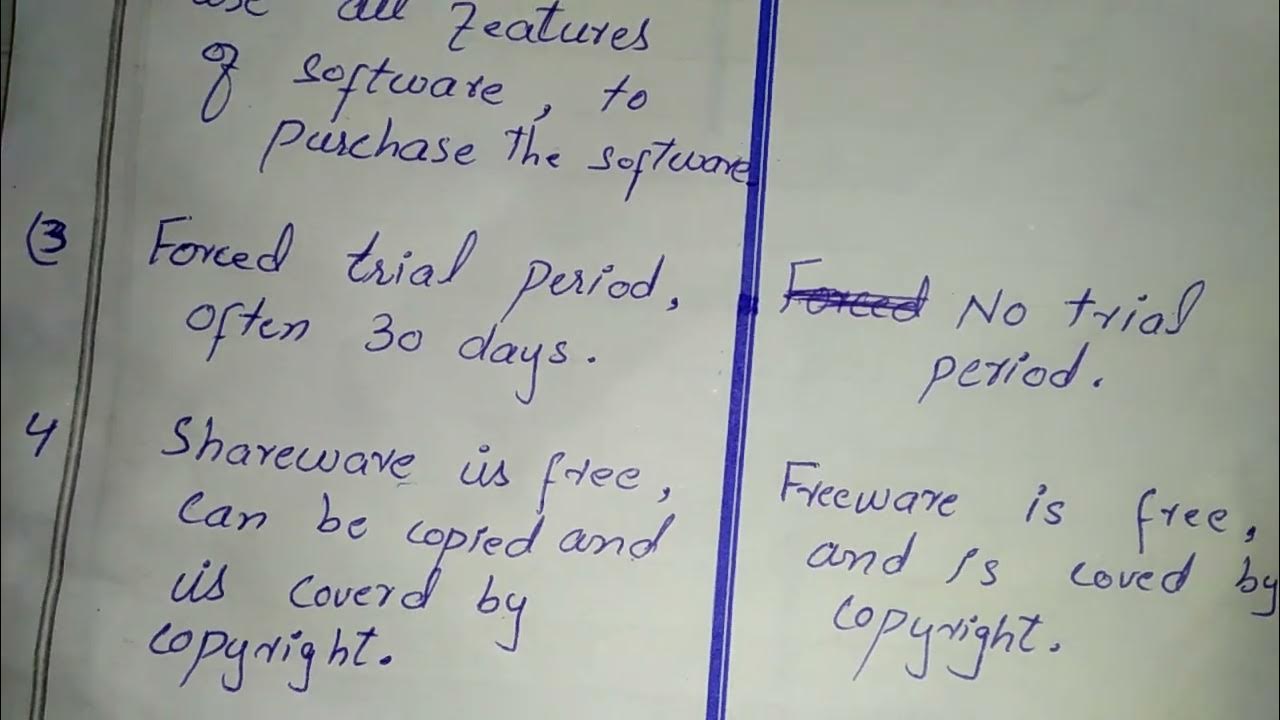 use all Features
of software, to
purchase the software.
(3 Forced trial period,
often 30 days.
Forced No trial
period.
4 Shareware is free,
can be copied and
is coverd by
copyright.
Freeware is free,
and is coved by
copyright.